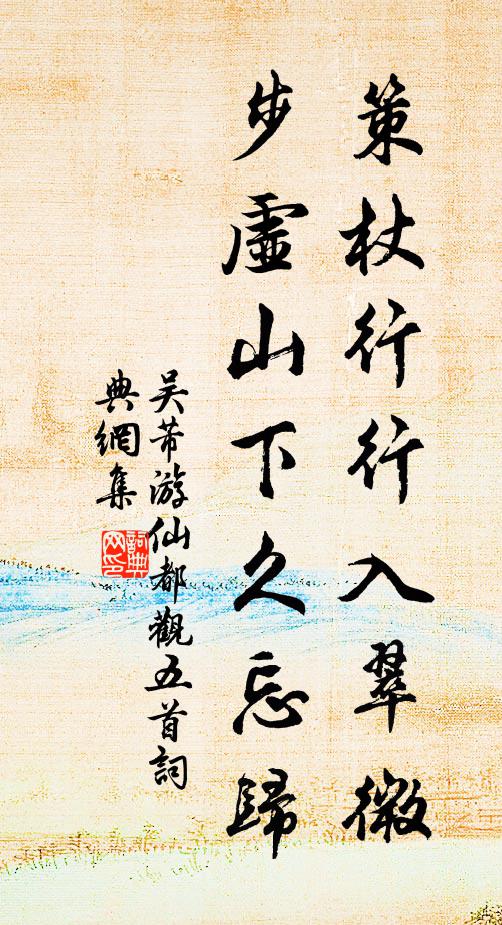 策杖行行入翠微
步虛山下久忘歸
吴芾游仙都觀五首詞
典網集
詞典
网印